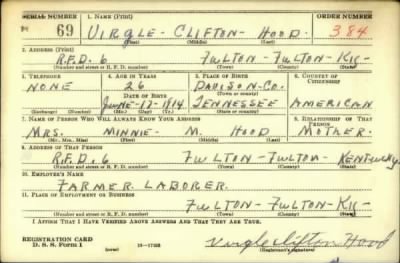 SERIAL NUMBER 1. NAME (Print) ORDER NUMBER
69 VIRGLE - CLIFTON - HOOD 384
(First) (Middle) (Last)
2. ADDRESS (Print)
R.F.D. 6 FULTON - FULTON - KY -
(Number and street or R. F. D. number) (Town) (County) (State)
3. TELEPHONE 4. AGE IN YEARS 5. PLACE OF BIRTH 6. COUNTRY OF CITIZENSHIP
NONE 26 DAVISON - CO.
DATE OF BIRTH (Town or county)
JUNE - 17 - 1914 TENNESSEE AMERICAN
(Exchange) (Number) (Mo.) (Day) (Yr.) (State or country)
7. NAME OF PERSON WHO WILL ALWAYS KNOW YOUR ADDRESS 8. RELATIONSHIP OF THAT PERSON
MRS. MINNIE - M. HOOD MOTHER -
(Mr., Mrs., Miss) (First) (Middle) (Last)
9. ADDRESS OF THAT PERSON
R.F.D. 6 FULTON - FULTON - KENTUCKY
(Number and street or R. F. D. number) (Town) (County) (State)
10. EMPLOYER'S NAME
FARMER LABORER.
11. PLACE OF EMPLOYMENT OR BUSINESS
FULTON - FULTON - KY -
(Number and street or R. F. D. number) (Town) (County) (State)
I AFFIRM THAT I HAVE VERIFIED ABOVE ANSWERS AND THAT THEY ARE TRUE.
REGISTRATION CARD
D. S. S. FORM 1 (over) Virgle Clifton Hood
(Registrant's signature)